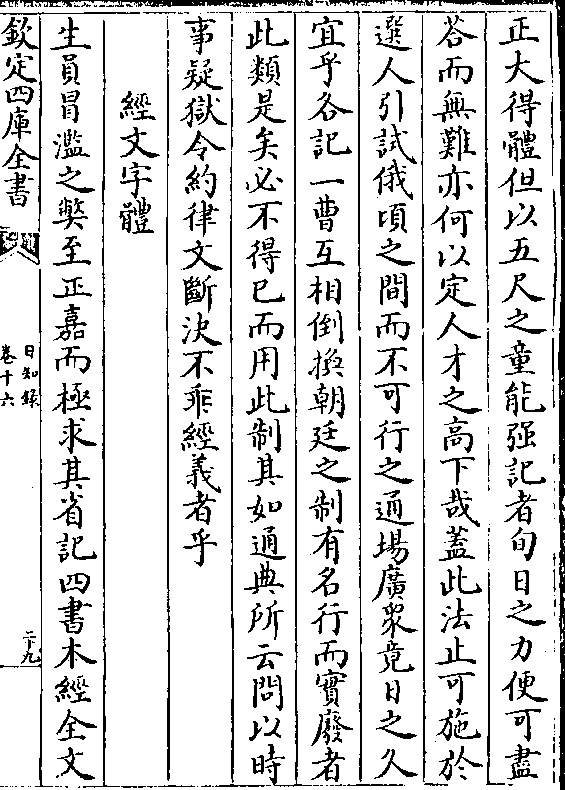 正大得體但以五尺之童能强記者旬日之力便可盡
答而無難亦何以定人才之高下哉蓋此法止可施於
選人引試俄頃之間而不可行之通場廣衆竟日之久
宜乎各記一曹互相倒換朝廷之制有名行而實廢者
此類是矣必不得已而用此制其如通典所云問以時
事疑獄令約律文斷決不乖經義者乎
經文字體
生員冒濫之弊至正嘉而極求其省記四書本經全文
欽定四庫全書
日知錄
卷十六
二十九